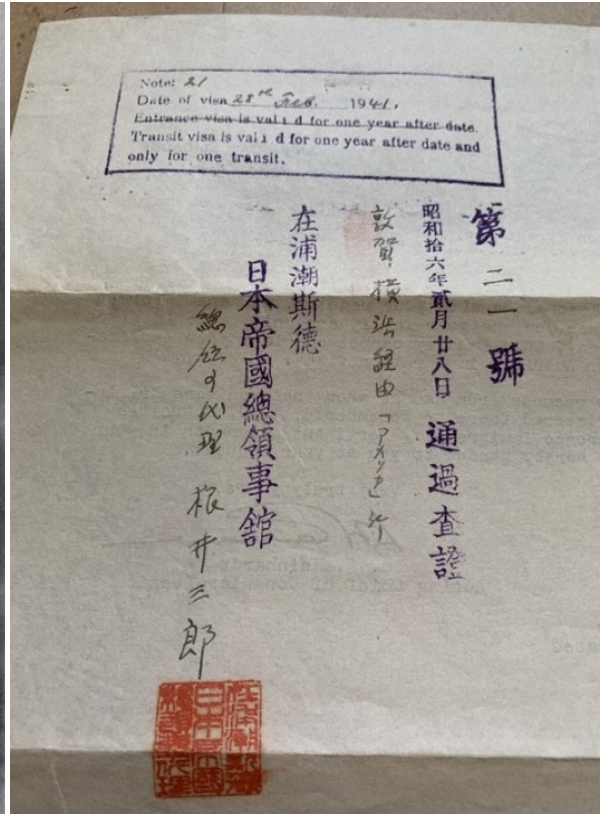 Note: 21
Date of visa 28th Feb. 1941.
Entrance visa is valid for one year after date.
Transit visa is valid for one year after date and
only for one transit.
第二一號
昭和拾六年貳月廿八日 通過査證
敦賀横浜経由「アメリカ」行
在浦潮斯德
日本帝國總領事館
總領事代理 根井三郎